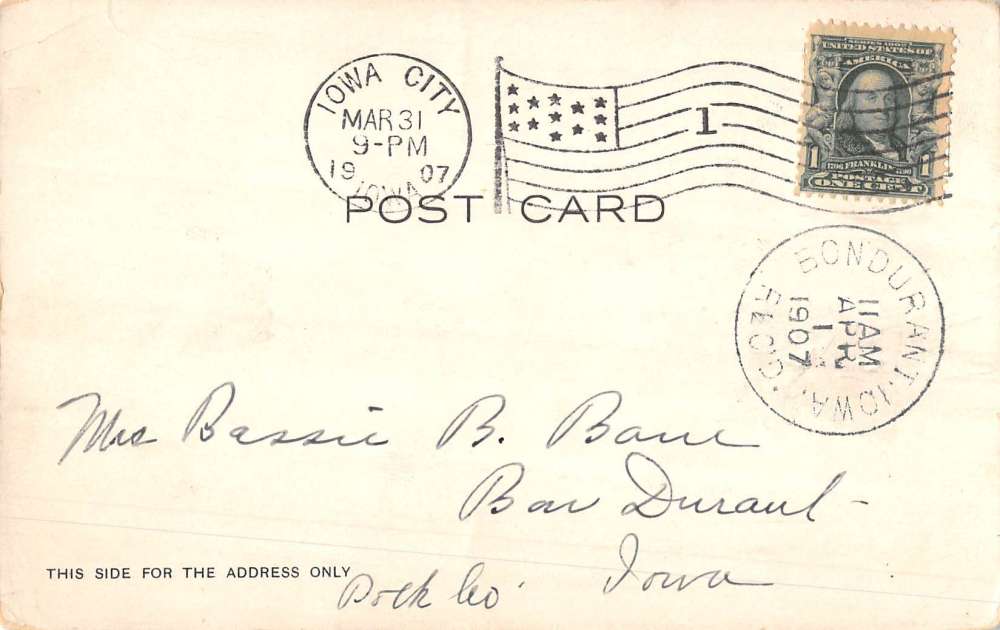 IOWA CITY
MAR 31
9-PM
19 07
IOWA
1
SERIES 1902
UNITED STATES OF
AMERICA
1706 FRANKLIN 1790
1 POSTAGE 1
ONE CENT
POST CARD
BONDURANT, IOWA.
11 AM
APR
1
1907
REC'D.
Mrs Bassie B. Bane
Bon Durant
Iowa
THIS SIDE FOR THE ADDRESS ONLY
Polk Co